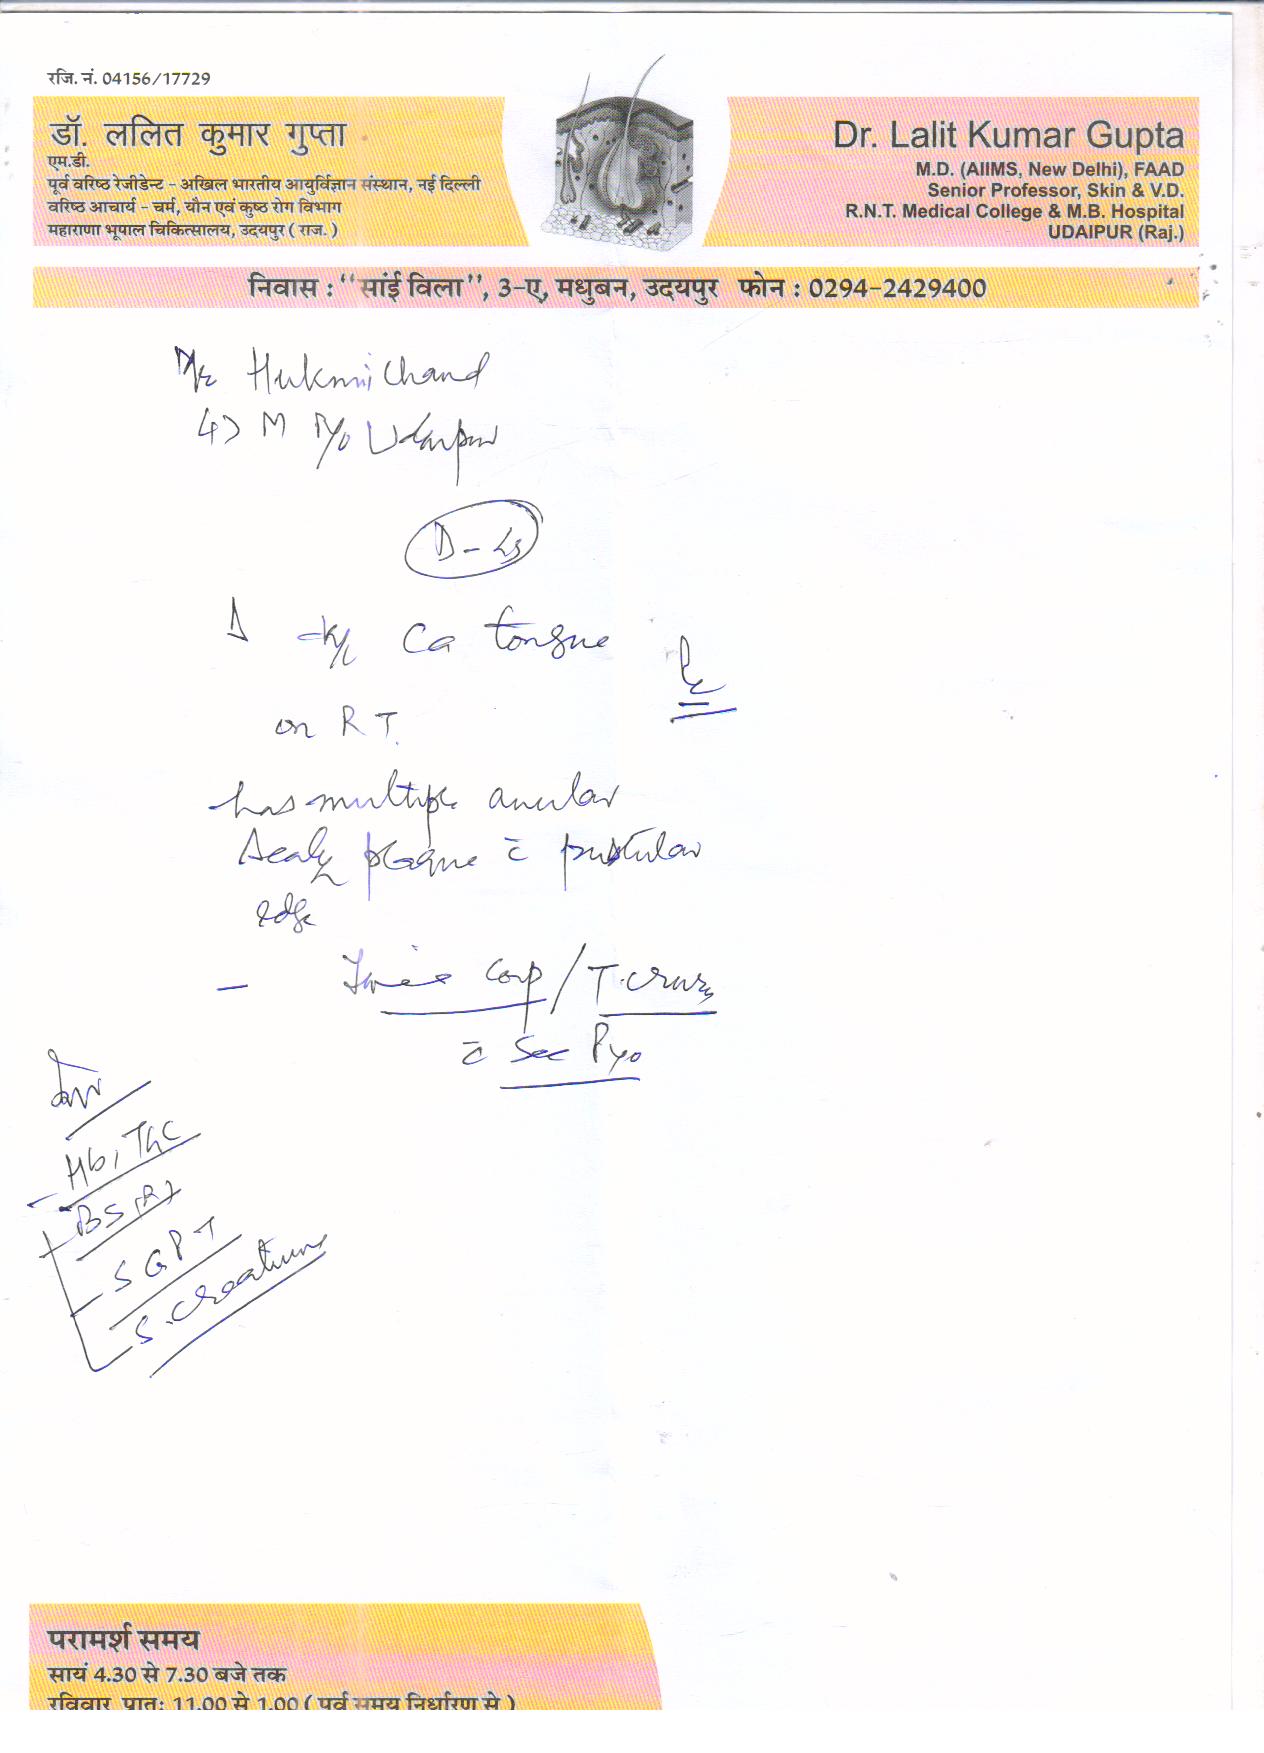 रजि. नं. 04156/17729
डॉ. ललित कुमार गुप्ता
एम.डी.
पूर्व वरिष्ठ रेजीडेन्ट - अखिल भारतीय आयुर्विज्ञान संस्थान, नई दिल्ली
वरिष्ठ आचार्य - चर्म, यौन एवं कुष्ठ रोग विभाग
महाराणा भूपाल चिकित्सालय, उदयपुर ( राज. )
Dr. Lalit Kumar Gupta
M.D. (AIIMS, New Delhi), FAAD
Senior Professor, Skin & V.D.
R.N.T. Medical College & M.B. Hospital
UDAIPUR (Raj.)
निवास : "सांई विला", 3-ए, मधुबन, उदयपुर फोन : 0294-2429400
Mr Hukmi Chand
M R/o Udaipur
Δ K/c Ca tongue
on R T.
has multiple anular
scaly plaque c̄ pustular
edge
- Tinea Corp / T. cruris
c̄ Sec Pyo
Inv
Hb, TLC
BS (R)
SGPT
S. Creatinine
परामर्श समय
सायं 4.30 से 7.30 बजे तक
रविवार प्रातः 11.00 से 1.00 ( पूर्व समय निर्धारण से )